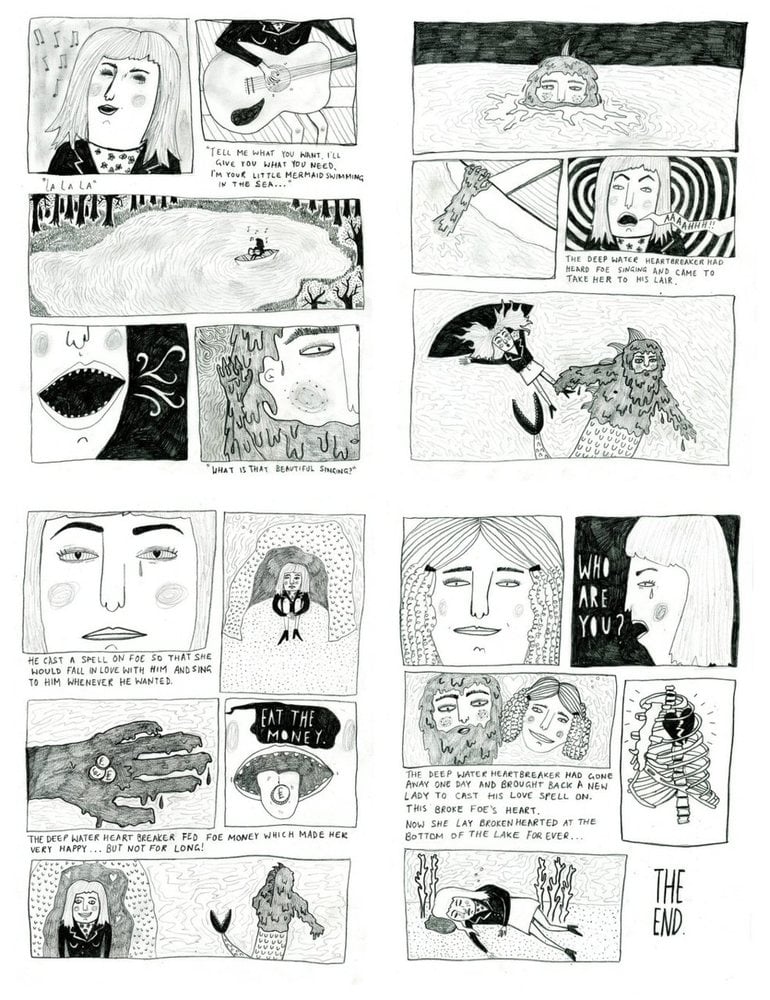 "LA LA LA"
"TELL ME WHAT YOU WANT, I'LL
GIVE YOU WHAT YOU NEED.
I'M YOUR LITTLE MERMAID SWIMMING
IN THE SEA..."
"WHAT IS THAT BEAUTIFUL SINGING?"
AAAAHHH!!
THE DEEP WATER HEARTBREAKER HAD
HEARD FOE SINGING AND CAME TO
TAKE HER TO HIS LAIR.
HE CAST A SPELL ON FOE SO THAT SHE
WOULD FALL IN LOVE WITH HIM AND SING
TO HIM WHENEVER HE WANTED.
EAT THE
MONEY.
£
THE DEEP WATER HEART BREAKER FED FOE MONEY WHICH MADE HER
VERY HAPPY... BUT NOT FOR LONG!
WHO
ARE
YOU?
THE DEEP WATER HEARTBREAKER HAD GONE
AWAY ONE DAY AND BROUGHT BACK A NEW
LADY TO CAST HIS LOVE SPELL ON.
THIS BROKE FOE'S HEART.
NOW SHE LAY BROKENHEARTED AT THE
BOTTOM OF THE LAKE FOR EVER...
THE
END.